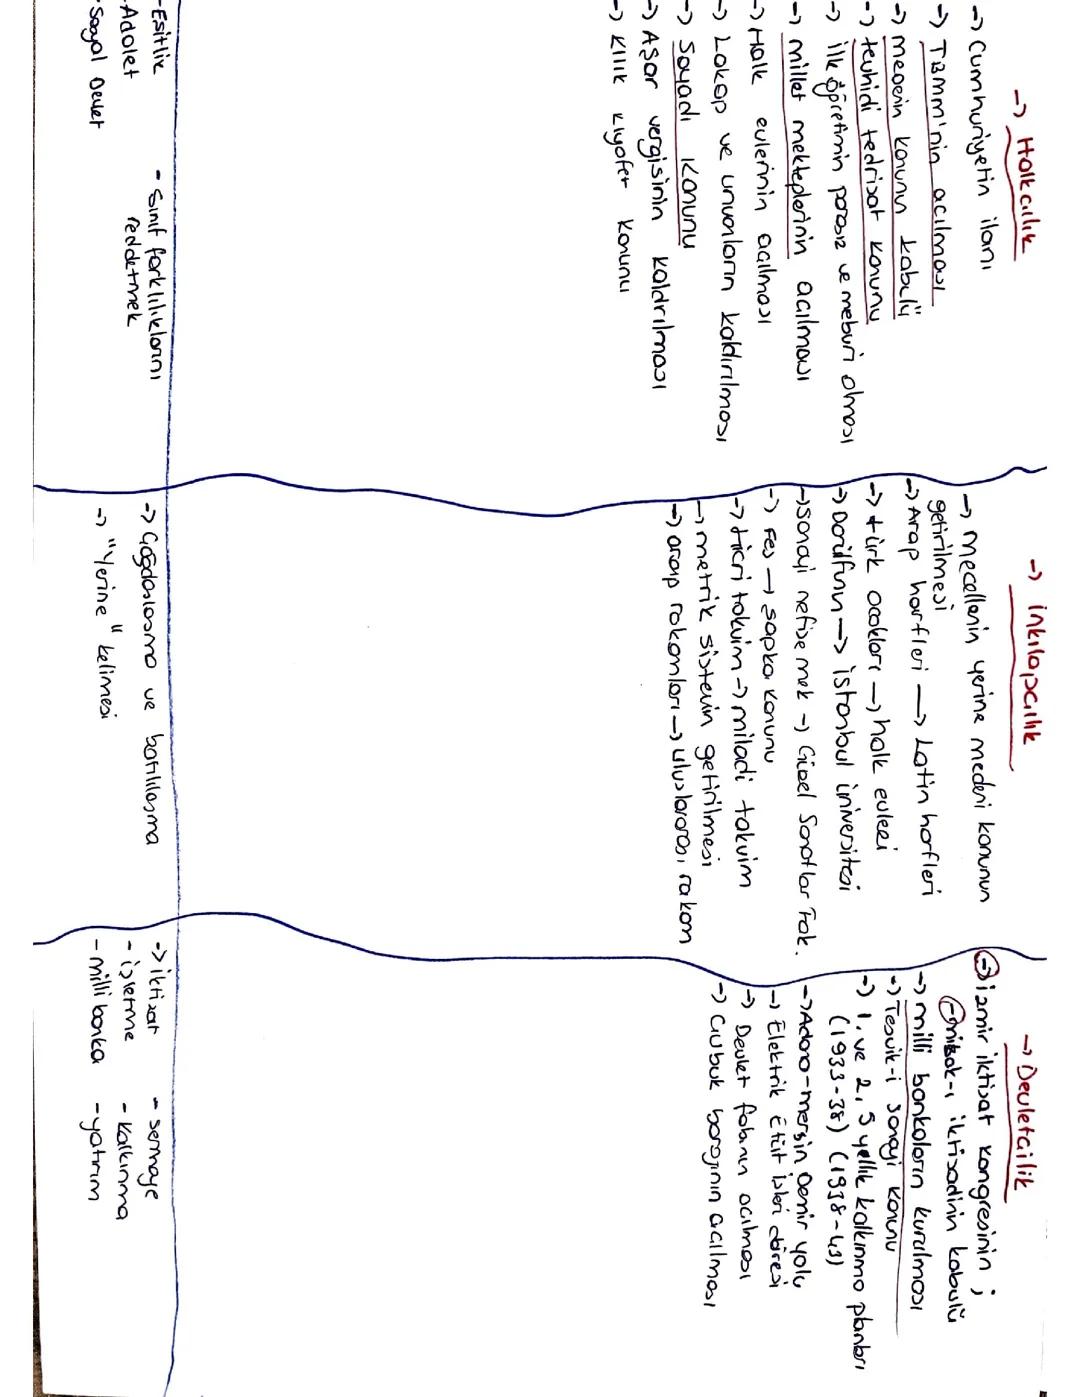 -> Halkcılık
-> Cumhuriyetin ilanı
-> TBMM'nin açılması
-> medenin kanunun kabulü
-> tevhidi tedrisat kanunu
-> ilk öğretimin parasız ve meburi olması
-> millet mekteplerinin açılması
-> Halk evlerinin açılması
-> Lakap ve unvanların kaldırılması
-> Soyadı Kanunu
-> Aşar vergisinin kaldırılması
-> Kılık kıyafet Kanunu
- Esitlik
- Adalet
- Sosyal Devlet
- Sınıf farklılıklarını
reddetmek
-> inkılapcılık
-> mecellenin yerine medeni kanunun
getirilmesi
-> Arap harfleri -> Latin harfleri
-> türk ocakları -> halk evleri
-> Darülfunun -> istanbul üniversitesi
-> sanayi nefise mek -> Güzel Sanatlar Fak.
-> Fes -> şapka kanunu
-> Hicri takvim -> miladi takvim
-> metrik sistemin getirilmesi
-> arap rakamları -> uluslararası rakam
-> Çağdaşlaşma ve batılılaşma
-> "Yerine" kelimesi
-> Devletcilik
-> izmir iktisat kongresinin ;
- misak-ı iktisadinin kabulü
-> milli bankaların kurulması
-> Teşvik-i Sanayi Kanunu
-> 1. ve 2. 5 yıllık kalkınma planları
(1933-38) (1938-43)
-> Adana-mersin Demir yolu
-> Elektrik Etüt işleri idiresi
-> Devlet faBanın açılması
-> Çubuk barajının açılması
-> iktisat
- işletme
- milli banka
- sermaye
- kalkınma
- yatırım